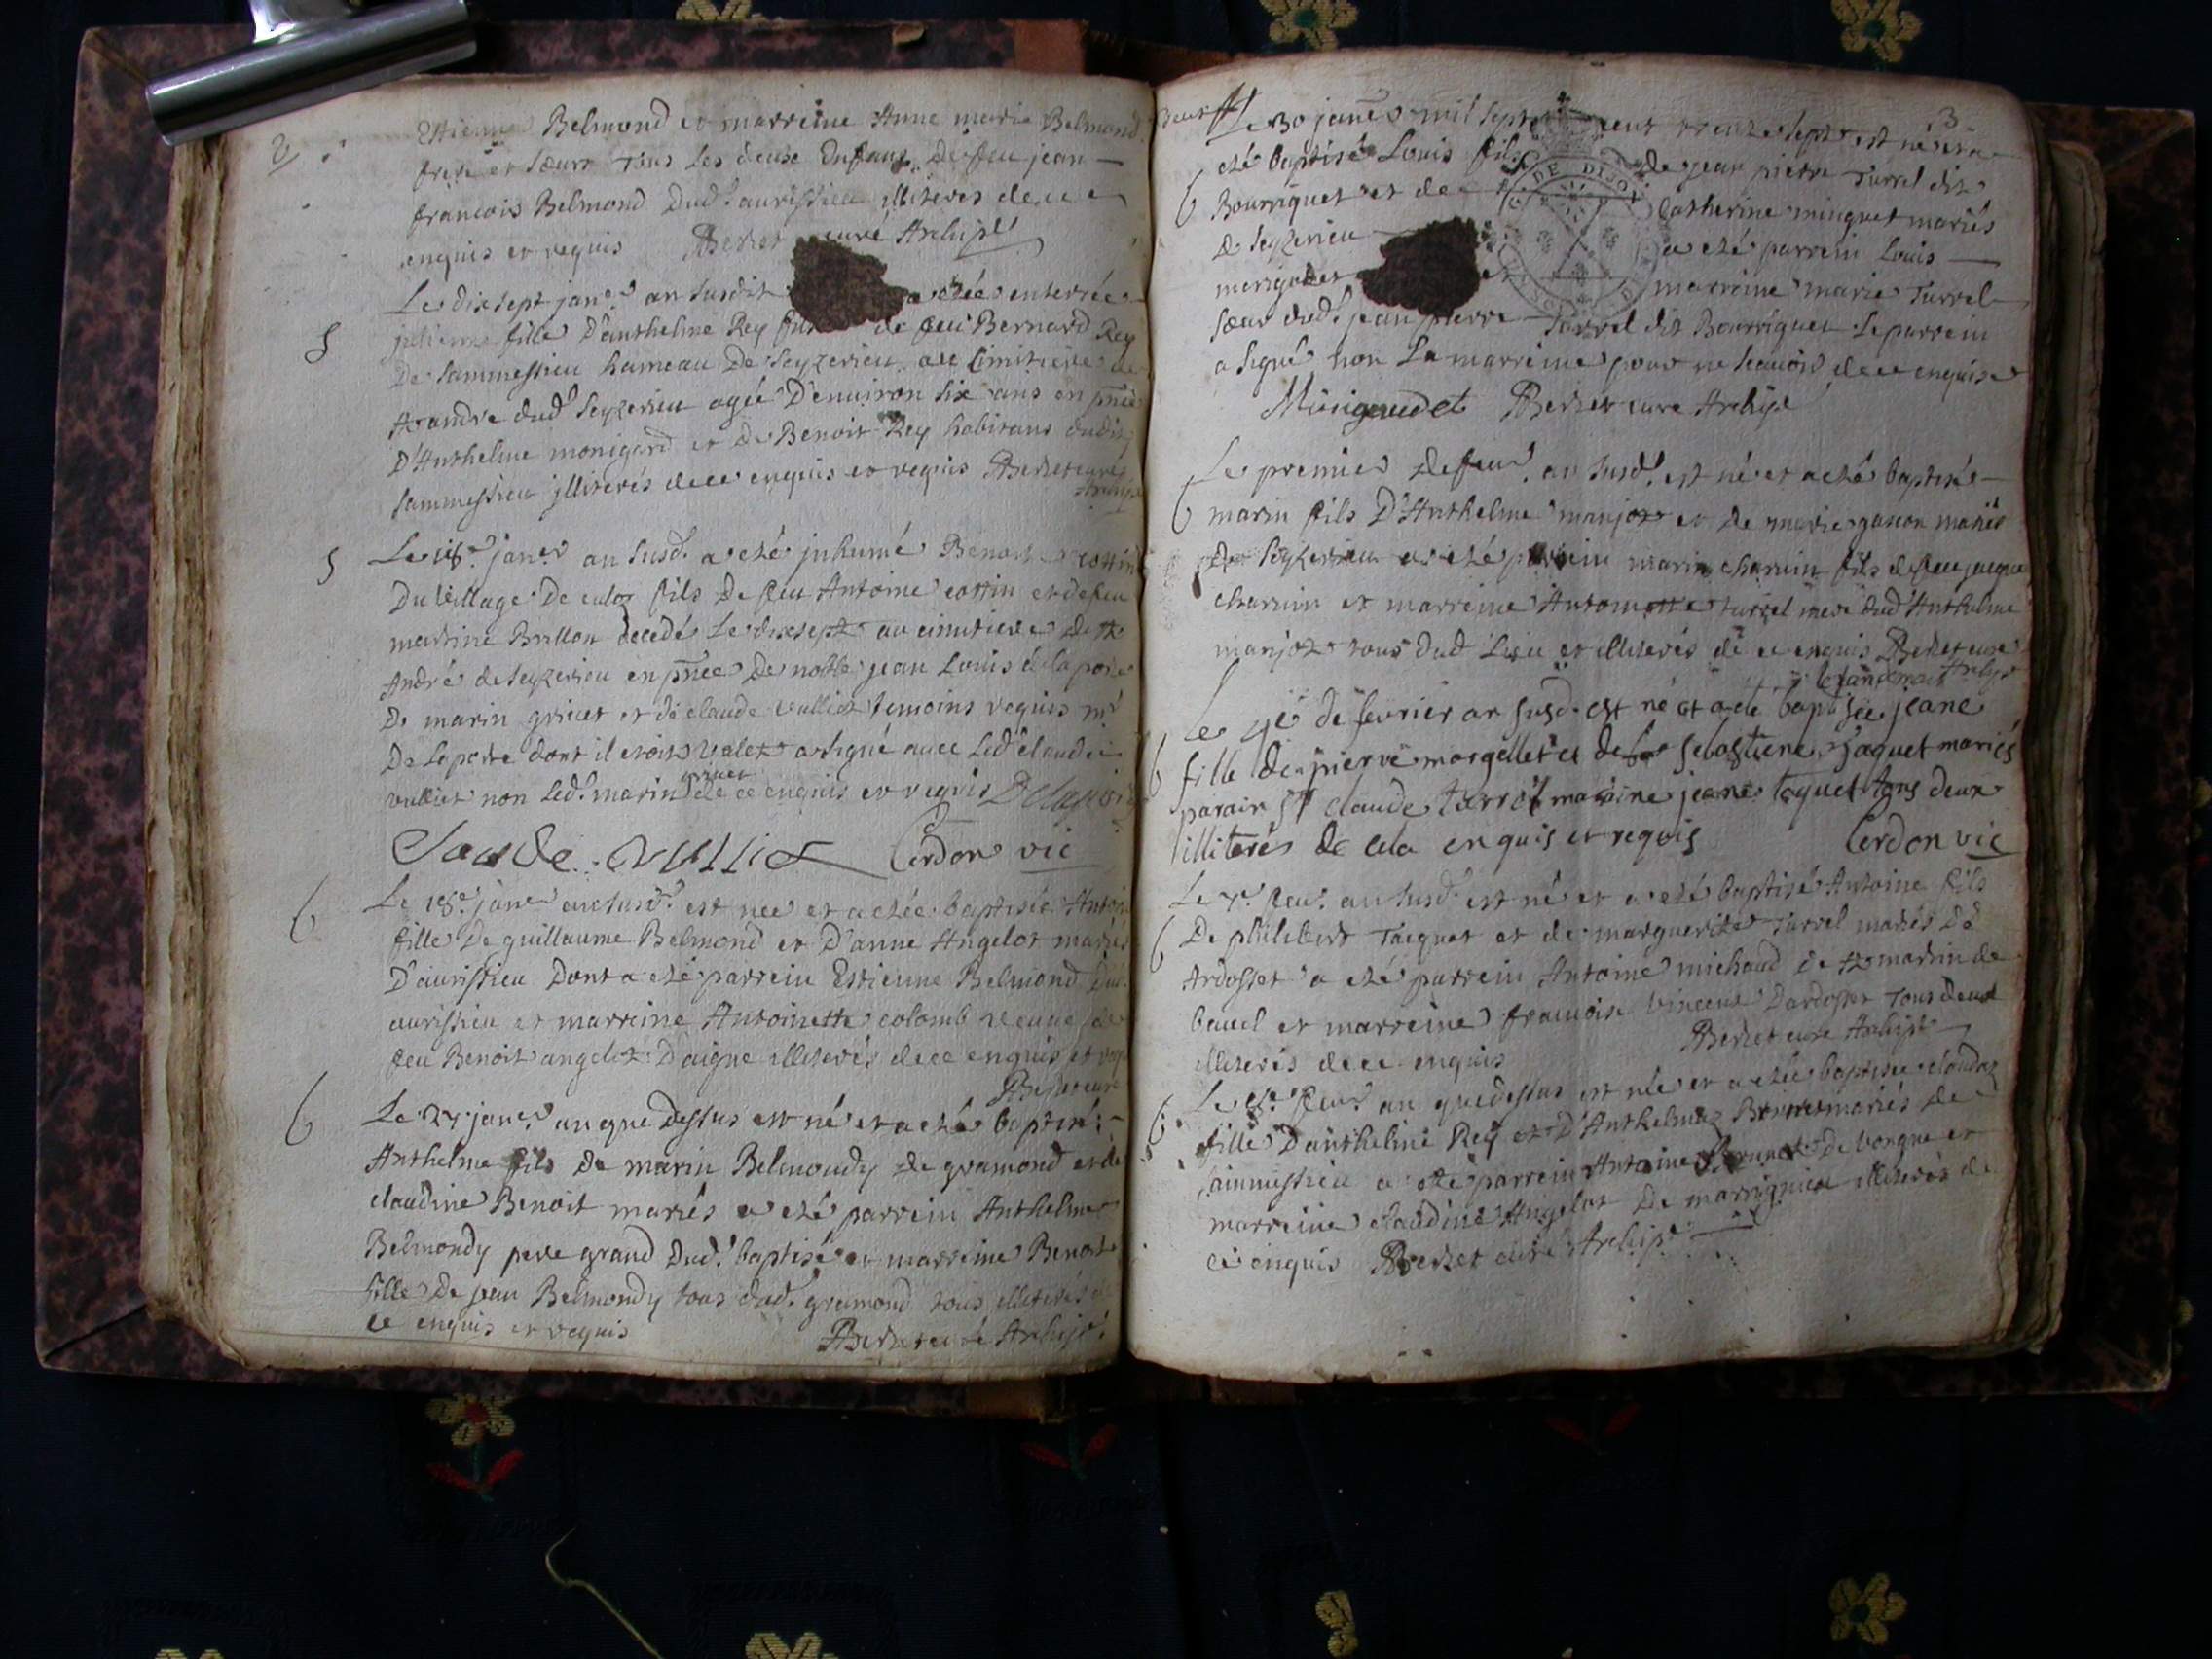 2
Estienne Belmond et marreine Anne marie Belmond
frere et soeur tous les deux enfans de feu jean
francois Belmond dud. aurissieu illiteres de ce
enquis et requis Berset curé Archip.
Le dix sept janer an susdit a etée enterrée
S
julienne fille d'anthelme Rey fils de feu Bernard Rey
de sammessieu hameau de Seyzerieu au Cimitiere de
St andre dud. Seyzerieu agée d'environ six ans en pnce
d'Anthelme monigard et de Benoit Rey habitans dudit
sammessieu illiterés de ce enquis et requis Berset curé
Archip
S
Le 18e janer an susd. a eté inhumé Benoit cottin
du village de culoz fils de feu Antoine cottin et de feu
martine Brillon decedé Le dixsept au cimitiere de St
André de Seyzerieu en pnce de noble jean Louis de la porte
de marin grivet et de claude vulliet temoins requis mr
De Laporte dont il etoit valet a signé avec led. claude
vulliet non led. marin grivet de ce enquis et requis Delaporte
Claude vulliet Cerdon vic
6
Le 18e janer an susd. est nee et a etée baptisée Antoin
fille de guillaume Belmond et D'anne Angelot mariés
D'aurissieu dont a eté parrein Estienne Belmond dud.
aurissieu et marreine Antoinette colomb veuve de
feu Benoit angelot D'aigne illiterés de ce enquis et req
Berset curé
6
Le 27 janer an que dessus est né et a eté baptisé
Anthelme fils de marin Belmondy de gramond et de
claudine Benoit mariés a eté parrein Anthelme
Belmondy pere grand dud. baptisé et marreine Benoite
fille de jean Belmondy tous dud. gramond tous illiterés
ce enquis et requis Berset curé Archip.
3
Le 30 janer mil sept cent trente sept est né et a
eté baptisé Louis fils de jean pierre Turrel dit
6
Bourriquet et de Catherine minguet mariés
de Seyzerieu a eté parrein Louis
DE DIJON
merigodet et marreine marie Turrel
soeur dud. jean pierre Turrel dit Bourriquet Le parrein
a signé non La marreine pour ne scavoir de ce enquise
Merigaudet Berset curé Archip.
Le premier de feur. an susd. est né et a eté baptisé
6
marin fils D'Anthelme manjot et de marie ganon mariés
de Seyzerieu a eté parrein marin charvin fils de feu jacque
charvin et marreine Antoinette turrel mere dud. Anthelme
manjot tous dud. Lieu et illiterés de ce enquis Berset curé
Archip
Le 4e de fevrier an susd. est né et a eté baptisée jeane
6
fille de pierre morgellet et de sebastiene jaquet mariés
parain St claude turrel maraine jeane taquet tous deux
illiterés de cela enquis et requis Cerdon vic
Le 7e feur. an susd. est né et a eté baptisé Antoine fils
6
De philibert Tacquet et de marguerite Turrel mariés de
Ardosset a eté parrein Antoine michaud de St martin de
bavel et marreine francoise vincent D'ardosset Tous deux
illiterés de ce enquis Berset curé Archip.
Le 8e feur. an que dessus est née et a etée baptisée claudaz
6
fille D'anthelme Rey et D'Anthelmaz Brunet mariés de
sammessieu a eté parrein Antoine Brunet de vongne et
marreine claudine Angelot de marrignieu illiterés de
ce enquis Berset curé Archip.